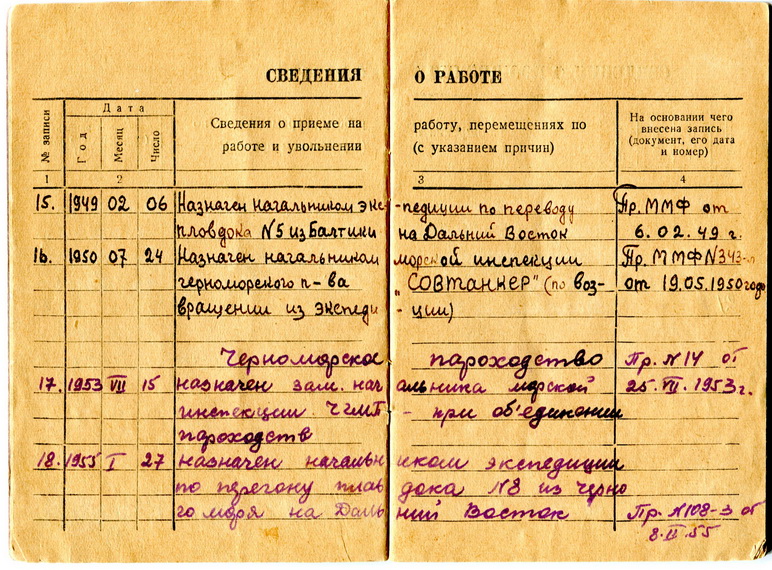 СВЕДЕНИЯ О РАБОТЕ
№ записи
Дата
Год
Месяц
Число
Сведения о приеме на работу, перемещениях по
работе и увольнении (с указанием причин)
На основании чего
внесена запись
(документ, его дата
и номер)
1 2 3 4
15. 1949 02 06 Назначен начальником экс-педиции по переводу Пр. ММФ от
пловдока №5 из Балтики на Дальний Восток 6.02.49 г.
16. 1950 07 24 Назначен начальником морской инспекции Пр. ММФ №343-
черноморского п-ва „СОВТАНКЕР" (по воз- от 19.05.1950 года
вращении из экспеди-ции)
Черноморское пароходство Пр. №14 от
17. 1953 VII 15 назначен зам. начальника морской 25.VII.1953 г.
инспекции ЧГМП - при об'единении
пароходств
18. 1955 I 27 назначен начальником экспедиции
по перегону плавдока №8 из Черно
го моря на Дальний Восток Пр. №108-э от
8.II.55